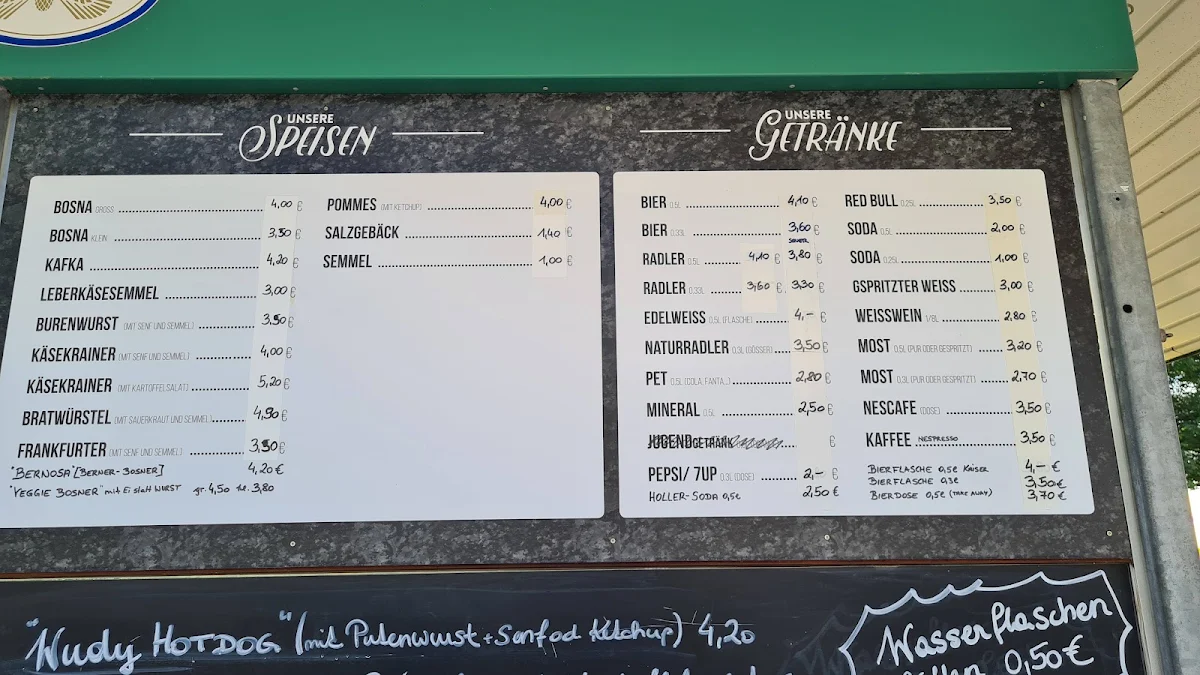 UNSERE
SPEISEN
BOSNA GROSS 4,00 €
BOSNA KLEIN 3,50 €
KAFKA 4,20 €
LEBERKÄSESEMMEL 3,00 €
BURENWURST (MIT SENF UND SEMMEL) 3,50 €
KÄSEKRAINER (MIT SENF UND SEMMEL) 4,00 €
KÄSEKRAINER (MIT KARTOFFELSALAT) 5,20 €
BRATWÜRSTEL (MIT SAUERKRAUT UND SEMMEL) 4,50 €
FRANKFURTER (MIT SENF UND SEMMEL) 3,50 €
"BERNOSA" [BERNER-BOSNER] 4,20 €
"VEGGIE BOSNER" mit Ei statt WURST gr. 4,50 kl. 3,80
POMMES (MIT KETCHUP) 4,00 €
SALZGEBÄCK 1,40 €
SEMMEL 1,00 €
UNSERE
GETRÄNKE
BIER 0,5L 4,10 €
BIER 0,33L 3,60 €
RADLER 0,5L 4,10 € 3,80 €
RADLER 0,33L 3,60 € 3,30 €
EDELWEISS 0,5L (FLASCHE) 4,- €
NATURRADLER 0,3L (GÖSSER) 3,50 €
PET 0,5L (COLA, FANTA...) 2,80 €
MINERAL 0,5L 2,50 €
JUGENDGETRÄNK €
PEPSI/ 7UP 0,3L (DOSE) 2,- €
HOLLER-SODA 0,5l 2,50 €
RED BULL 0,25L 3,50 €
SODA 0,5L 2,00 €
SODA 0,25L 1,00 €
GSPRITZTER WEISS 3,00 €
WEISSWEIN 1/8L 2,80 €
MOST 0,5L (PUR ODER GESPRITZT) 3,20 €
MOST 0,3L (PUR ODER GESPRITZT) 2,70 €
NESCAFE (DOSE) 3,50 €
KAFFEE NESPRESSO 3,50 €
BIERFLASCHE 0,5l KAISER 4,- €
BIERFLASCHE 0,3l 3,50 €
BIERDOSE 0,5l (TAKE AWAY) 3,70 €
"Wudy HOTDOG" (mit Putenwurst + Senf od Ketchup) 4,20
Wasserflaschen
0,50 €